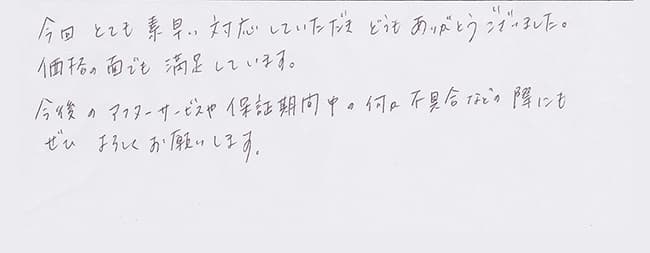 今回 とても 素早い 対応していただき どうも ありがとうございました。
価格の面でも 満足しています。
今後の アフターサービスや 保証期間中の何か不具合などの際にも
ぜひ よろしくお願いします。